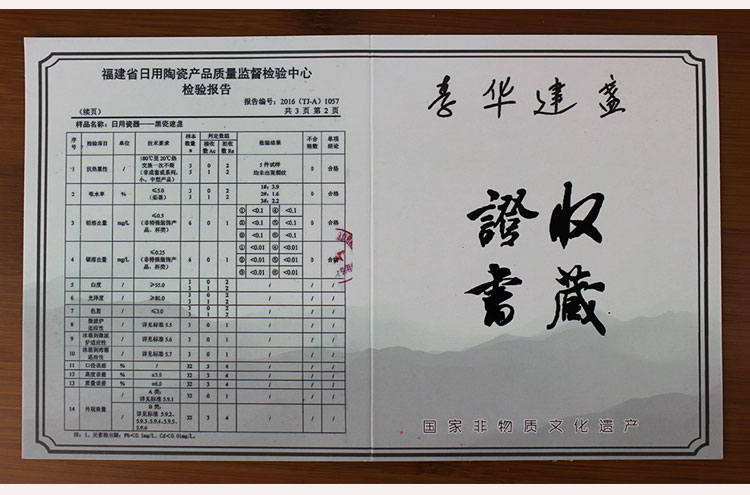 福建省日用陶瓷产品质量监督检验中心
检验报告
报告编号：2016（TJ-A）1057
（续页） 共 3 页 第 2 页
样品名称：日用瓷器——黑瓷建盏
序号 检验项目 单位 技术要求 样本数量 n 判定数组 接收数 Ac 拒收数 Re 检验结果 不合格数 单项结论
1 抗热震性 / 180℃至20℃热交换一次不裂（非成套或系列,小、中型产品） 3 5 0 1 2 2 5 件试样均未出现裂纹 0 合格
2 吸水率 % ≤5.0（炻器） 3 3 0 1 2 2 1#: 3.9 2#: 1.6 3#: 2.2 0 合格
3 铅溶出量 mg/L ≤0.5（非特殊装饰产品，杯类） 6 0 1 ① <0.1 ④ <0.1 ② <0.1 ⑤ <0.1 ③ <0.1 ⑥ <0.1 0 合格
4 镉溶出量 mg/L ≤0.25（非特殊装饰产品，杯类） 6 0 1 ① <0.01 ④ <0.01 ② <0.01 ⑤ <0.01 ③ <0.01 ⑥ <0.01 0 合格
5 白度 / ≥55.0 3 3 0 1 2 2 / / /
6 光泽度 / ≥80.0 3 3 0 1 2 2 / / /
7 色差 / ≤3.0 3 3 0 1 2 2 / / /
8 微波炉适应性 / 详见标准 5.5 3 0 1 / / /
9 冰箱到微波炉适应性 / 详见标准 5.6 3 0 1 / / /
10 冰箱到烤箱适应性 / 详见标准 5.7 3 0 1 / / /
11 口径误差 % / 32 3 4 / / /
12 高度误差 % ±3.0 32 3 4 / / /
13 重量误差 % ±6.0 32 3 4 / / /
14 外观质量 / A 类：详见标准 5.9.1 32 0 1 / / /
/ B 类：详见标准 5.9.2、5.9.3、5.9.4、5.9.5、5.9.6 32 3 4 / / /
注：1、元素检出限：Pb<0.1mg/L，Cd<0.01mg/L。
華建盏
收藏
證書
国家非物质文化遗产